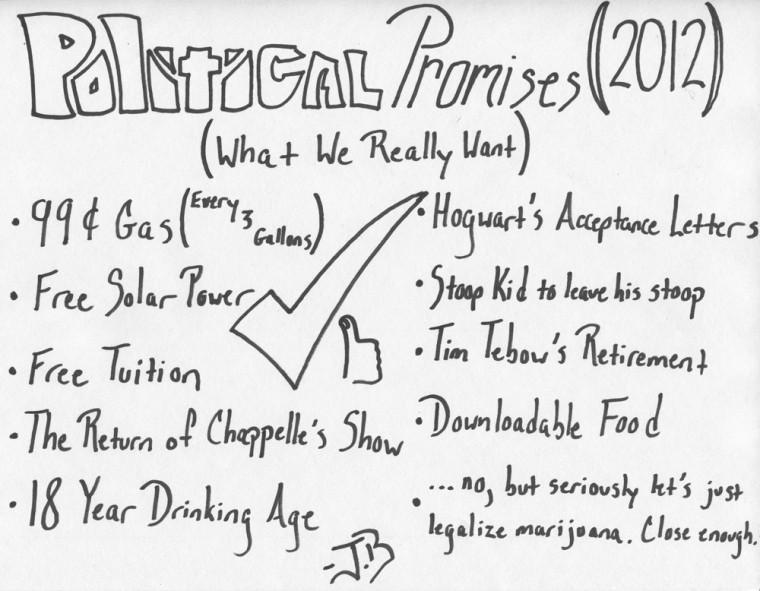 Political Promises (2012)
(What We Really Want)
• 99¢ Gas (Every 3 Gallons)
• Free Solar Power
• Free Tuition
• The Return of Chappelle's Show
• 18 Year Drinking Age
• Hogwart's Acceptance Letters
• Stoop Kid to leave his stoop
• Tim Tebow's Retirement
• Downloadable Food
• ... no, but seriously let's just
legalize marijuana. Close enough.
-J.B